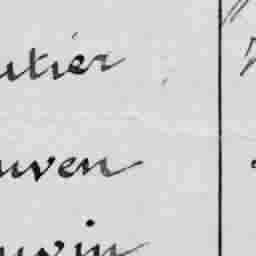 utier
uven
uvin